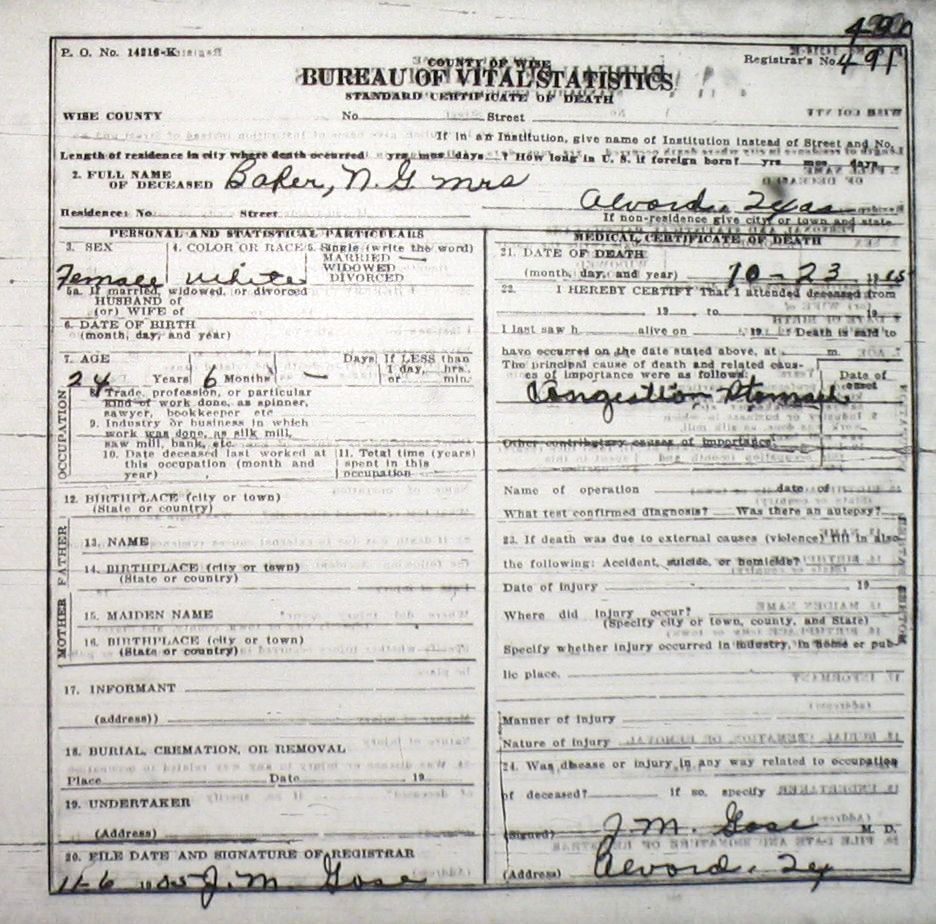 490
P. O. No. 14216-K
Registrar's No. 491
COUNTY OF WISE
BUREAU OF VITAL STATISTICS
STANDARD CERTIFICATE OF DEATH
WISE COUNTY No. Street
If in an Institution, give name of Institution instead of Street and No.
Length of residence in city where death occurred yrs mos days ? How long in U. S. if foreign born? yrs mos days
2. FULL NAME
OF DECEASED Baker, N. G. Mrs
Residence: No. Street Alvord, Texas
If non-residence give city or town and state
PERSONAL AND STATISTICAL PARTICULARS
3. SEX 4. COLOR OR RACE 5. Single (write the word)
MARRIED —
WIDOWED
DIVORCED
Female White
5a. If married, widowed, or divorced
HUSBAND of
(or) WIFE of
6. DATE OF BIRTH
(month, day, and year)
7. AGE Days If LESS than
1 day, hrs.
24 Years 6 Months — or min.
OCCUPATION
8 Trade, profession, or particular
kind of work done, as spinner,
sawyer, bookkeeper etc
9. Industry or business in which
work was done, as silk mill,
saw mill, bank, etc.
10. Date deceased last worked at
this occupation (month and
year)
11. Total time (years)
spent in this
occupation
12. BIRTHPLACE (city or town)
(State or country)
FATHER
13. NAME
14. BIRTHPLACE (city or town)
(State or country)
MOTHER
15. MAIDEN NAME
16. BIRTHPLACE (city or town)
(State or country)
17. INFORMANT
(address))
18. BURIAL, CREMATION, OR REMOVAL
Place Date 19
19. UNDERTAKER
(Address)
20. FILE DATE AND SIGNATURE OF REGISTRAR
11-6 J. M. Gose
MEDICAL CERTIFICATE OF DEATH
21. DATE OF DEATH
(month, day, and year) 10-23
22. I HEREBY CERTIFY That I attended deceased from
19 to 19
I last saw h alive on , 19 Death is said to
have occurred on the date stated above, at m.
The principal cause of death and related caus-
es of importance were as follows:
Date of
onset
Congestion Stomach
Other contributory causes of importance:
Name of operation date of
What test confirmed diagnosis? Was there an autopsy?
23. If death was due to external causes (violence) fill in also
the following: Accident, suicide, or homicide?
Date of injury 19
Where did injury occur?
(Specify city or town, county, and State)
Specify whether injury occurred in industry, in home or pub-
lic place.
Manner of injury
Nature of injury
24. Was disease or injury in any way related to occupation
of deceased? If so, specify
(Signed) J. M. Gose M. D.
(Address) Alvord, Tex